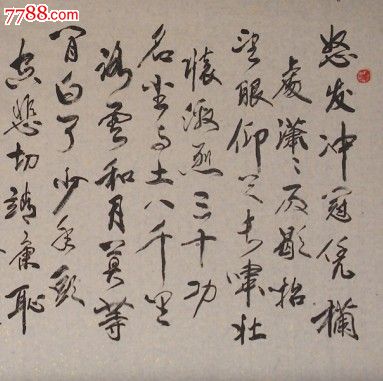 7788.com
怒发冲冠凭欄
處瀟瀟雨歇抬
望眼仰天长啸壮
懷激烈三十功
名尘与土八千里
路雲和月莫等
闲白了少年头
空悲切靖康恥